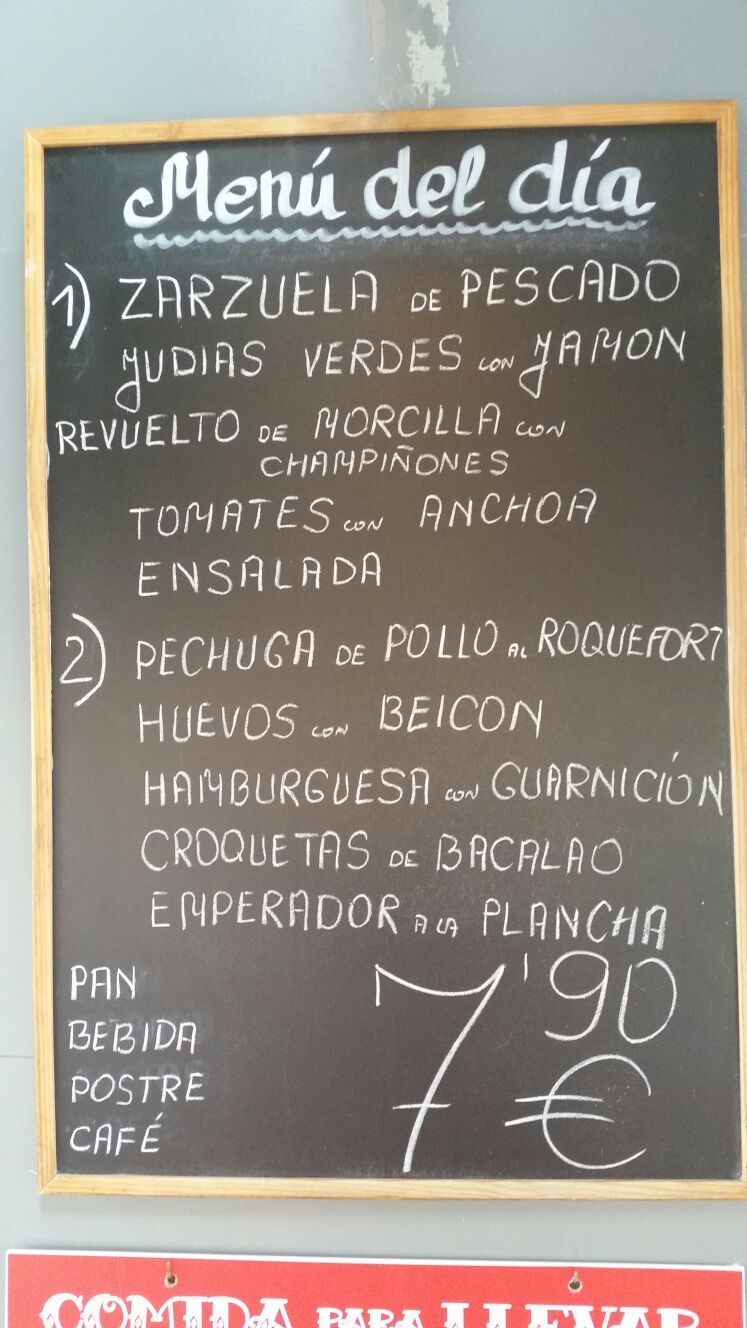 Menú del día
1) ZARZUELA DE PESCADO
JUDIAS VERDES CON JAMON
REVUELTO DE MORCILLA CON
CHAMPIÑONES
TOMATES CON ANCHOA
ENSALADA
2) PECHUGA DE POLLO AL ROQUEFORT
HUEVOS CON BEICON
HAMBURGUESA CON GUARNICIÓN
CROQUETAS DE BACALAO
EMPERADOR A LA PLANCHA
PAN
BEBIDA
POSTRE
CAFÉ
7'90
€
COMIDA PARA LLEVAR